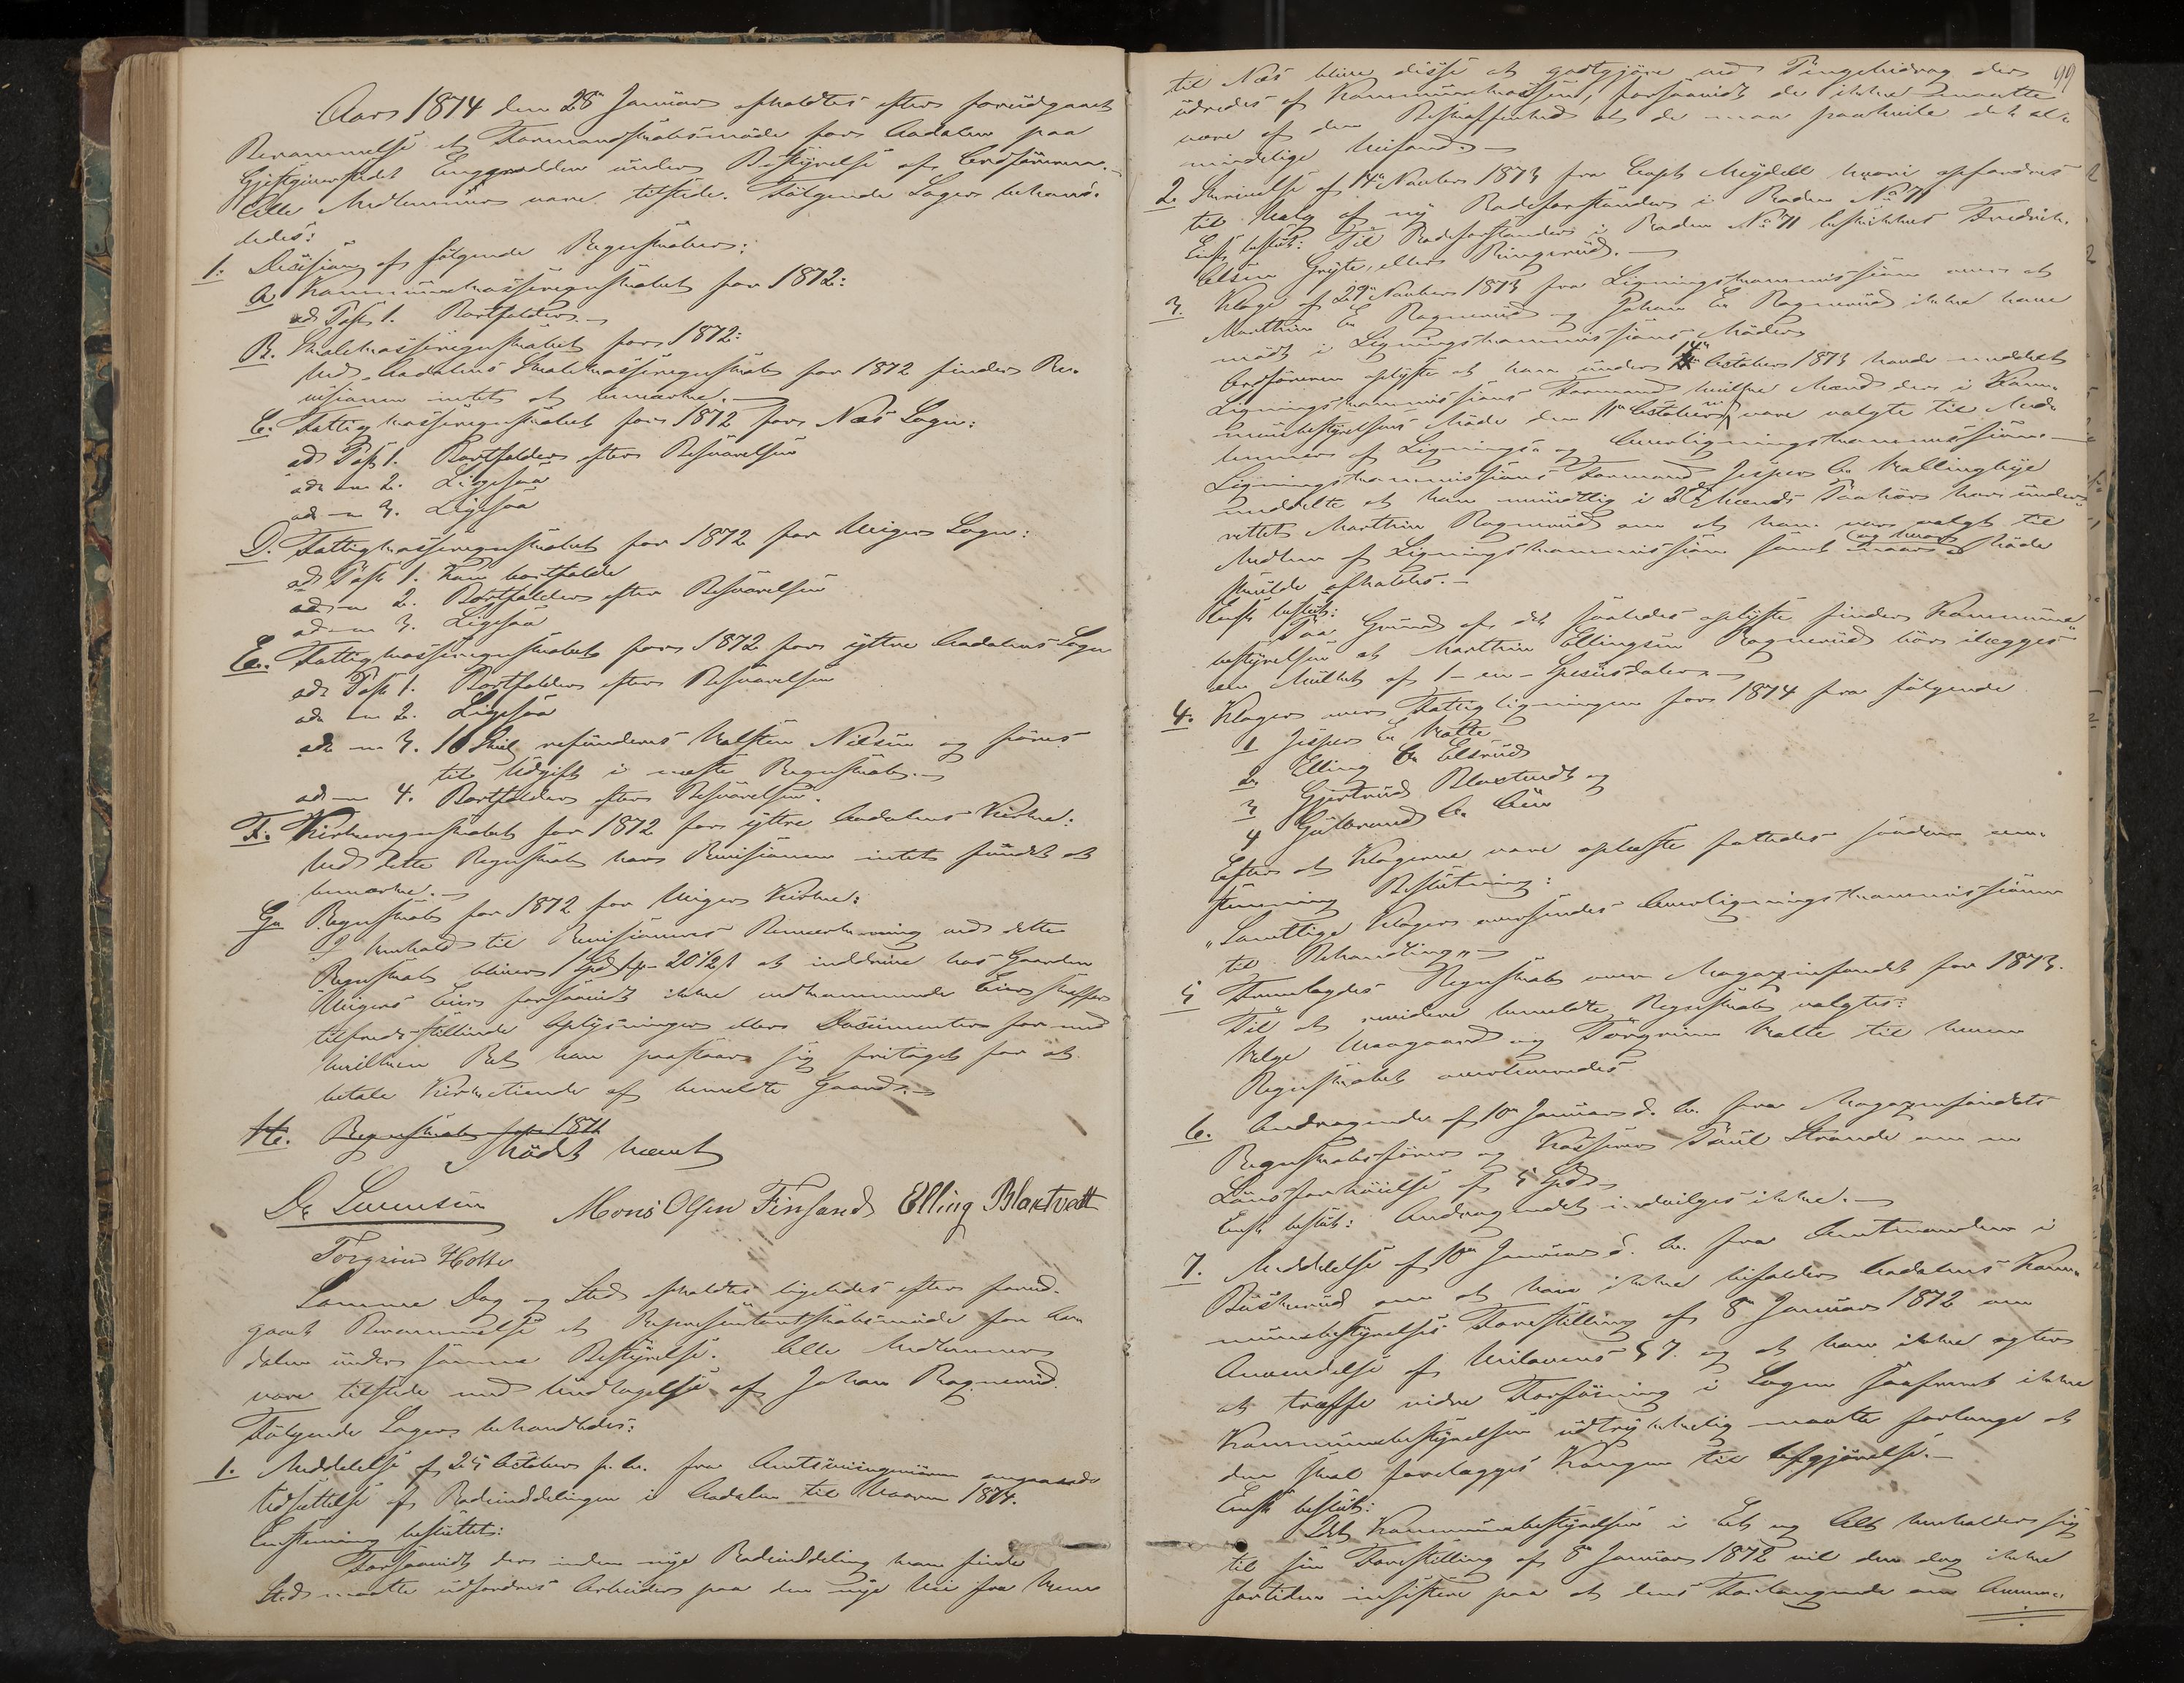 Aars 1874 den 28de Januar afholdtes efter forudgaaet
Berammelse et Formandskabsmøde for Aadalen paa
Gjæstgiverstedet Enggrædden under Bestyrelse af Ordføreren.
Alle Medlemmer vare tilstede. Følgende Sager behand-
ledes:
1. Decision af følgende Regnskaber:
A. Kommunekasseregnskabet for 1872:
ad Post 1. Bortfalder.
B. Skolekasseregnskabet for 1872:
Ved Aadalens Skolekasseregnskab for 1872 finder Re-
visionen intet at bemærke.
C. Fattigkasseregnskabet for 1872 for Næs Sogn:
ad Post 1. Bortfalder efter Besvarelsen
ad — 2. Ligesaa
ad — 3. Ligesaa
D. Fattigkasseregnskabet for 1872 for Viger Sogn:
ad Post 1. Kan bortfalde
ad — 2. Bortfalder efter Besvarelsen
ad — 3. Ligesaa
E. Fattigkasseregnskabet for 1872 for yttre Aadalens Sogn
ad Post 1. Bortfalder efter Besvarelsen
ad — 2. Ligesaa
ad — 3. 16 Skil refunderes Halsten Nilsen og føres
til Udgift i næste Regnskab.
ad — 4. Bortfalder efter Besvarelsen.
F. Kirkeregnskabet for 1872 for yttre Aadalens Kirke:
Ved dette Regnskab har Revisionen intet fundet at
bemærke.
G. Regnskab for 1872 for Viger Kirke:
I Henhold til Revisionens Bemærkning ved dette
Regnskab bliver 1 Spd 20 1/2 s at inddrive hos Gaarden
Vigers Eier forsaavidt ikke vedkommende Eier skaffer
tilfredsstillende Oplysninger eller Documenter for med
hvilken Ret han paastaar sig fritaget for at
betale Kirketiende af bemeldte Gaard.
H. Regnskab for 1871
Mødet hævet
O. Sørensen Mons Olsen Finsand Elling Blaxtvedt
Torgrim Holte
Samme Dag og Sted afholdtes ligeledes efter forud-
gaaet Berammelse et Repræsentantskabsmøde for Aa-
dalen under samme Bestyrelse. Alle Medlemmer
vare tilstede med Undtagelse af Johan Ragnerud.
Følgende Sager behandledes:
1. Meddelelse af 25 October f. A. fra Amtsingeniøren angaaende
Udsættelse af Rodeinddelingen i Aadalen til Vaaren 1874.
Enstemmig besluttet:
Forsaavidt der inden nye Rodeinddeling kan finde
Sted maatte udfordres Arbeider paa den nye Vei fra Hen
99
til Næs blive disse at godtgjøre med Pengebidrag der
udredes af Kommunekassen, forsaavidt de ikke maatte
være af den Beskaffenhed at de maa paahvile det al-
mindelige Veifond.
2. Skrivelse af 14de Novbr 1873 fra Capt Meydell hvori opfordres
til Valg af ny Rodeforstander i Roden No 11
Enst. beslut: Til Rodeforstander i Roden No 11 beskikkes Fredrik
Olsen Gryte, eller Ringerud.
3. Klage af 29de Novbr 1873 fra Ligningskommissionen over at
Marthin E. Ragnerud og Johan E. Ragnerud ikke have
mødt i Ligningskommissionens Møder
Ordføreren oplyste at han under 14de October 1873 havde meddelt
Ligningskommissionens Formand hvilke Mænd der i Kom-
munebestyrelsens Møde den 11te October vare valgte til Med-
lemmer af Lignings- og Overligningskommissionen
Ligningskommissionens Formand Jesper O. Hallingbye
meddelte at han mundtlig i 2de Mænds Paahør har under-
rettet Marthin Ragnerud om at han var valgt til
Medlem af Ligningskommissionen samt naar og hvor Møde
skulde afholdes.
Enst. beslut:
Paa Grund af det saaledes oplyste finder Kommune-
bestyrelsen at Marthin Ellingsen Ragnerud bør ilægges
en Mulkt af 1 – en – Speciesdaler.
4. Klager over Fattigligningen for 1874 fra følgende
1 Jesper E. Holte
2 Elling O. Elsrud
3 Gjertrud Blaxtvedt og
4 Gulbrand O.
Efter at Klagerne vare oplæste fattedes saadan een-
stemmig Beslutning:
"Samtlige Klager oversendes Overligningskommissionen
til Behandling"
5 Fremlagdes Regnskab over Magazinfondet for 1873.
Til at revidere bemeldte Regnskab valgtes:
Helge Haagaard og Torgrim Holte til hvem
Regnskabet overleveredes
6. Andragende af 10de Januar d. A. fra Magazinfondets
Regnskabsfører og Kasserer Poul Strande om en
Lønsforhøielse af 5 Spd
Enst beslut: Andragendet indvilges ikke.
7. Meddelelse af 10de Januar d. A. fra Amtmanden i
Buskerud om at han ikke bifalder Aadalens Kom-
munebestyrelses Forestilling af 8de Januar 1872 om
Anvendelse af Veilovens § 7. og at han ikke agter
at træffe videre Forføining i Sagen saafremt ikke
Kommunebestyrelsen udtrykkelig maatte forlange at
den skal forelægges Kongen til Afgjørelse.
Enst beslut:
Idet Kommunebestyrelsen i Et og Alt henholder sig
til sin Forestilling af 8de Januar 1872 vil den dog ikke
fortiden insistere paa at dens Forlangende om Anven-